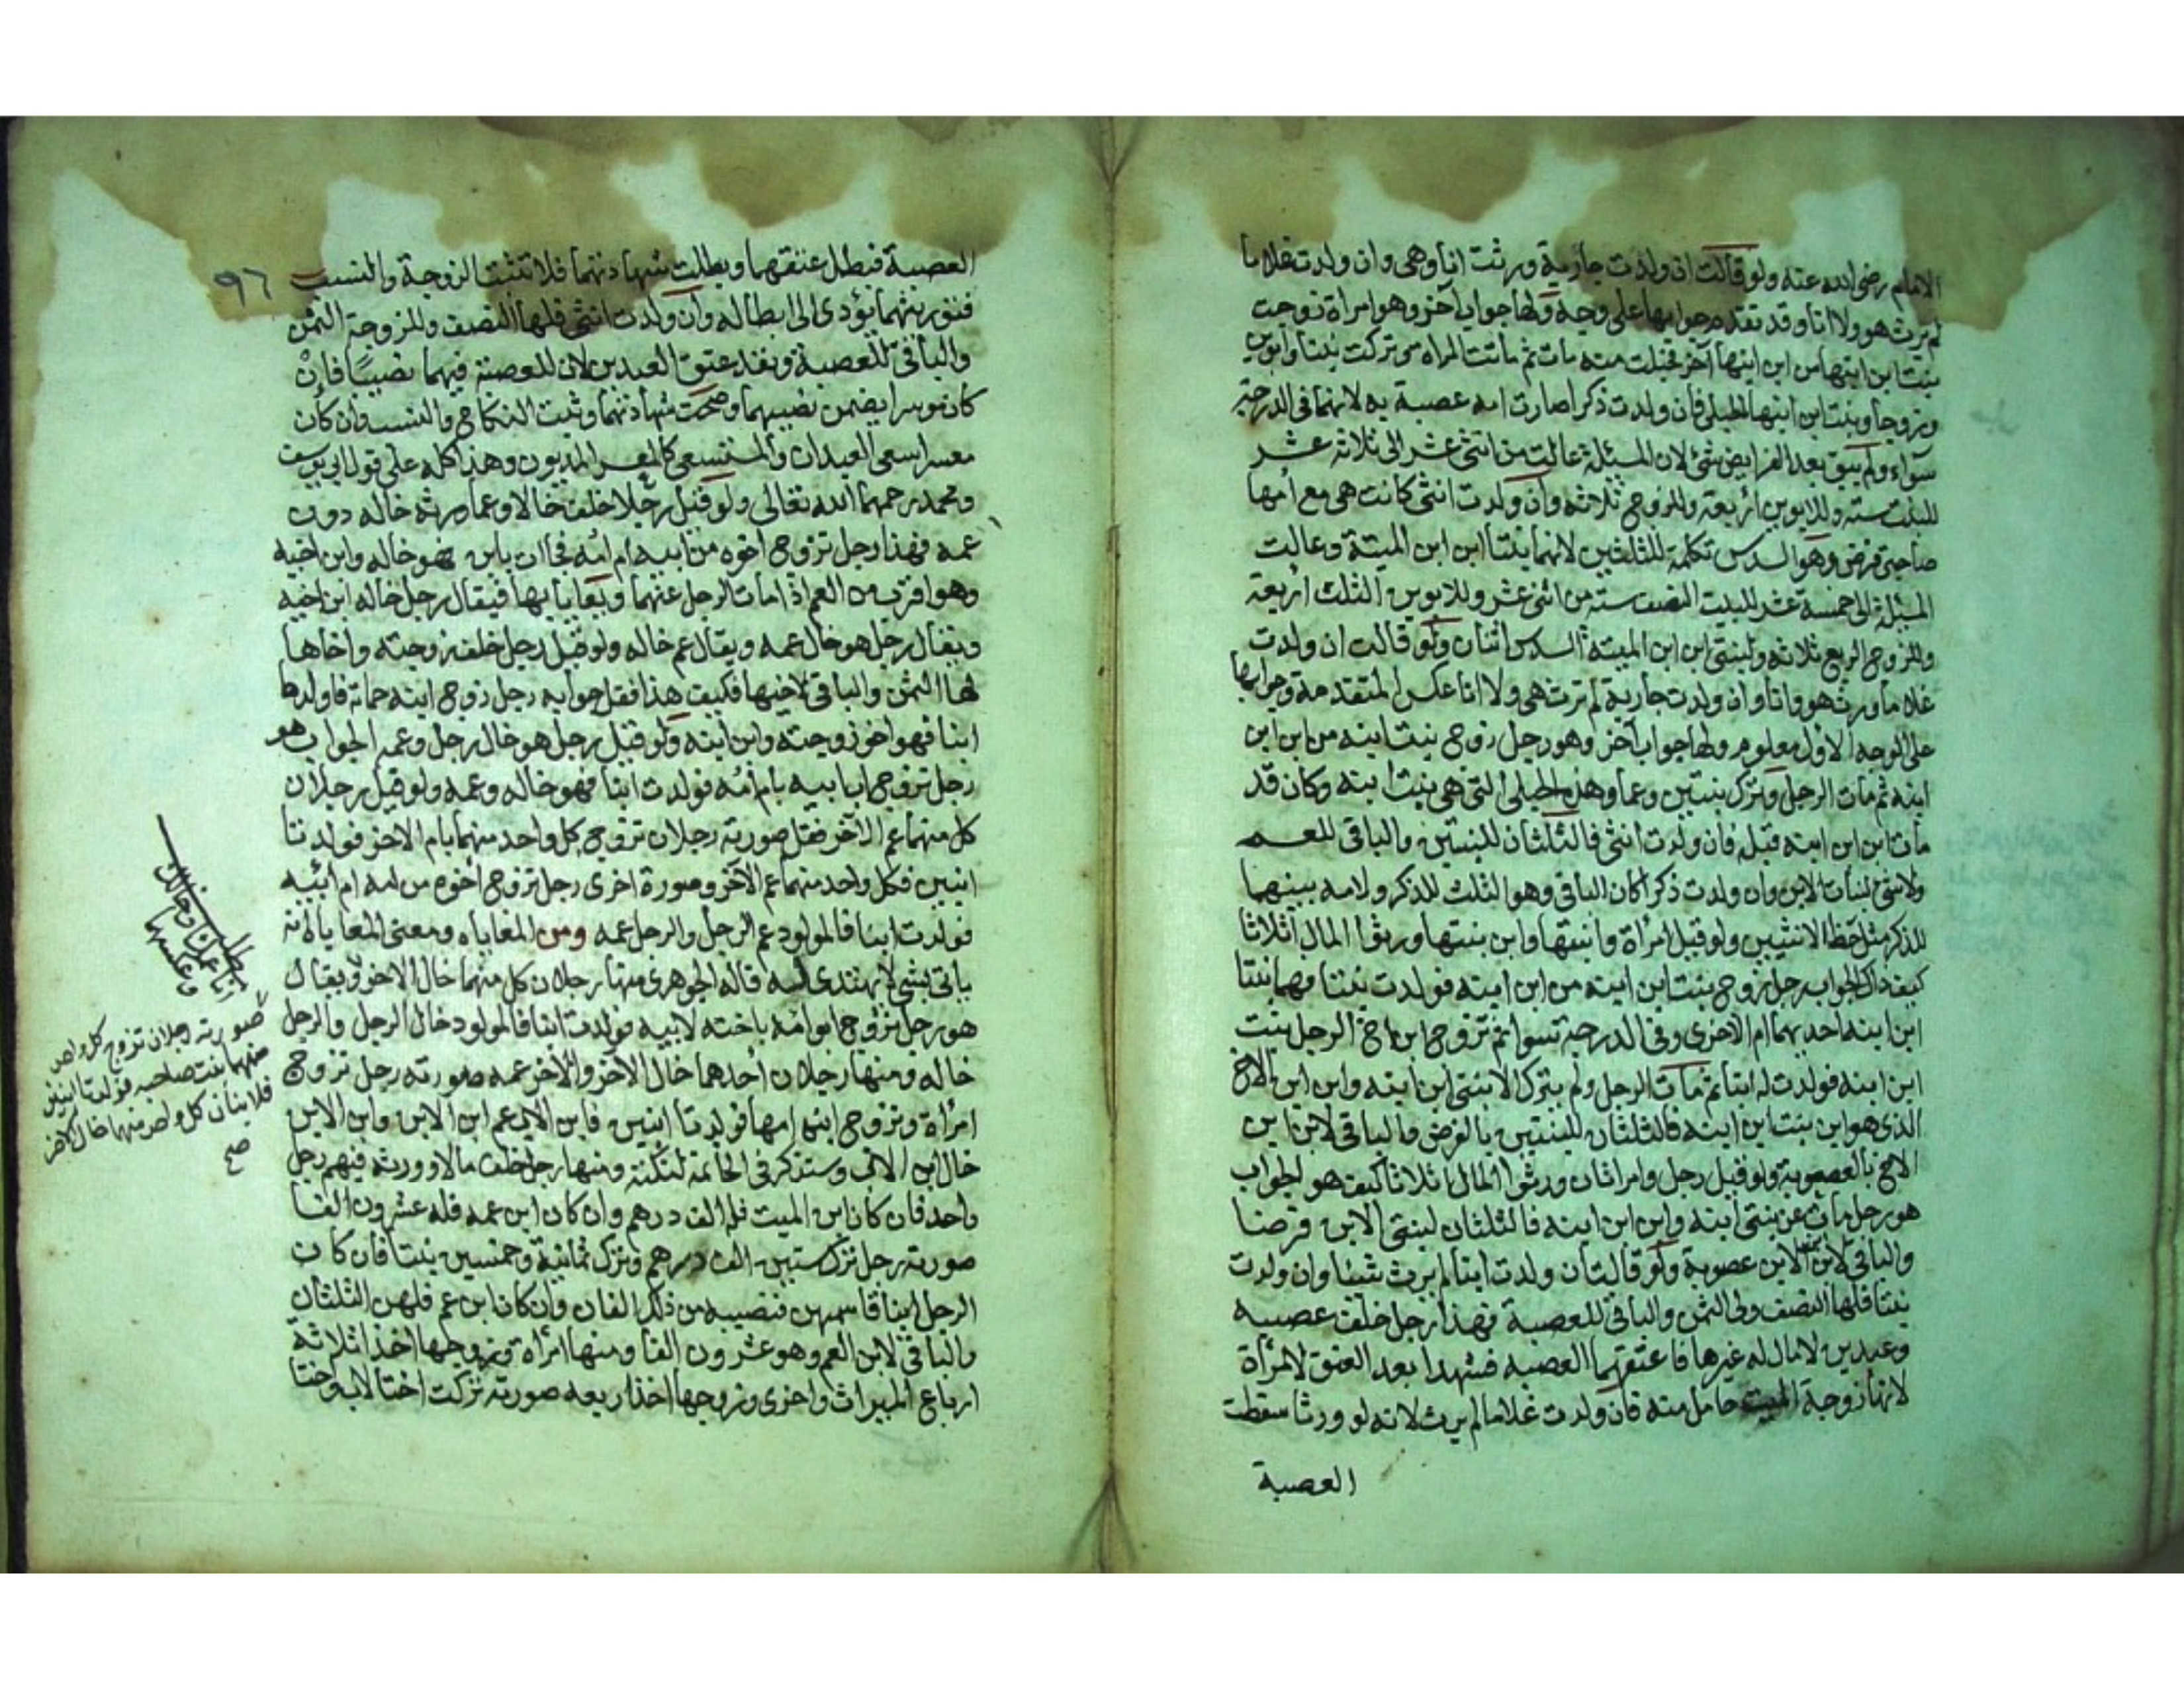 الامام رضي الله عنه ولو قالت ان ولدت جارية ورثت انا وهي وان ولدت غلاما
لم يرث هو ولا انا وقد تقدم جوابها على وجه ولها جواب آخر وهو امراة زوجت
بنت ابن ابنها من ابن ابنها آخر فحبلت منه مات ثم ماتت المراه عن تركت بنتا وابوين
وزوجا وبنت ابن ابنها الحبلى فان ولدت ذكرا صارت امه عصبة به لانهما في الدرجة
سواء ولم يبق بعد الفرايض شئ لان المسئلة عالت من اثنى عشر الى ثلاثة عشر
للبنت ستة وللابوين اربعة وللزوج ثلاثة وان ولدت انثى كانت هي مع امها
صاحبتي فرض وهو السدس تكملة للثلثين لانهما بنتا ابن ابن الميتة وعالت
المسئلة الى خمسة عشر للبنت النصف ستة من اثنى عشر وللابوين الثلث اربعة
وللزوج الربع ثلاثة ولبنتي ابن ابن الميتة السدس اثنان ولو قالت ان ولدت
غلاما ورث هو وانا وان ولدت جارية لم ترث هي ولا انا عكس المتقدمة وجوابها
على الوجه الاول معلوم ولها جواب آخر وهو رجل زوج بنت ابنه من ابن ابن
ابنه ثم مات الرجل وترك بنتين وعما وهذه الحبلى التي هي بنت ابنه وكان قد
مات ابن ابن ابنه قبله فان ولدت انثى فالثلثان للبنتين والباقي للعم
ولا شئ لبنات الابن وان ولدت ذكرا كان الباقي وهو الثلث للذكر ولامه بينهما
للذكر مثل حظ الانثيين ولو قيل امراة وابنتها وابن بنتها ورثوا المال اثلاثا
كيف ذاك الجواب رجل زوج بنت ابن ابنه من ابن ابنه فولدت بنتا فهما بنتا
ابن ابنه احديهما ام الاخرى وفي الدرجة سوا ثم تزوج ابن اخ الرجل بنت
ابن ابنه فولدت له ابنا ثم مات الرجل ولم يترك الا بنتي ابن ابنه وابن ابن الاخ
الذي هو ابن بنت ابن ابنه فالثلثان للبنتين بالفرض والباقي لابن ابن
الاخ بالعصوبة ولو قيل رجل وامراتان ورثوا المال اثلاثا كيف هو الجواب
هو رجل مات عن بنتي ابنه وابن ابن ابنه فالثلثان لبنتي الابن فرضا
والباقي لابن ابن الابن عصوبة ولو قالت ان ولدت ابنا لم يرث شيئا وان ولدت
بنتا فلها النصف ولي الثمن والباقي للعصبة فهذا رجل خلف عصبه
وعبدين لا مال له غيرها فاعتقهما العصبه فشهدا بعد العتق لامرأة
لانها زوجة الميت حامل منه فان ولدت غلاما لم يرث لانه لو ورثا سقطت
العصبة
٩٦
العصبة فبطل عتقهما وبطلت شهادتهما فلا تثبت الزوجة والنسب
فتوريثهما يؤدى الى ابطاله وان ولدت انثى فلها النصف وللزوجة الثمن
والباقي للعصبة ونفذ عتق العبدين لان للعصبة فيهما نصيبا فان
كان موسرا يضمن نصيبهما وصحت شهادتهما وثبت النكاح والنسب وان كان
معسرا سعى العبدان والمستسعى كالمعسر المديون وهذا كله على قول ابي يوسف
ومحمد رحمهما الله تعالى ولو قيل رجلا خلف خالا وعما ورثه خاله دون
عمه فهذا رجل تزوج اخوه من ابيه ام امه فجاات بابن فهو خاله وابن اخيه
وهو اقرب من العم اذا مات الرجل عنهما ويعايا بها فيقال رجل خاله ابن اخيه
ويقال رجل هو خال عمه ويقال عم خاله ولو قيل رجل خلف زوجته واخاها
لها الثمن والباقي لاخيها فكيف هذا فقل جوابه رجل زوج ابنه حماته فاولدها
ابنا فهو اخو زوجته وابن ابنه ولو قيل رجل هو خال رجل وعمه الجواب هو
رجل تزوج ابا ابيه بام امه فولدت ابنا فهو خاله وعمه ولو قيل رجلان
كل منهما عم الآخر فقل صورته رجلان تزوج كل واحد منهما بام الاخر فولدتا
ابنين فكل واحد منهما عم الآخر وصورة اخرى رجل تزوج اخوه من امه ام ابيه
فولدت ابنا فالمولود عم الرجل والرجل عمه ومن المغاياه ومعنى المعاياة انه
ياتى بشئ لا يهتدى اليه قاله الجوهري منها رجلان كل منهما خال الاخر ويقال
هو رجل تزوج ابو امه باخته لابيه فولدت ابنا فالمولود خال الرجل والرجل
خاله ومنها رجلان احدهما خال الآخر والآخر عمه صورته رجل تزوج
امرأة وتزوج ابنه امها فولدتا ابنين فابن الاب عم ابن الابن وابن الابن
خال ابن الاب وستذكر في الخاتمة لنكتة ومنها رجل خلف مالا وورثه فيهم رجل
واحد فان كان ابن الميت فله الف درهم وان كان ابن عمه فله عشرون الفا
صورته رجل ترك ستين الف درهم وترك ثمانية وخمسين بنتا فان كان
الرجل ابنا قاسمهن فنصيبه من ذلك الفان وان كان ابن عم فلهن الثلثان
والباقي لابن العم وهو عشرون الفا ومنها امرأة وزوجها اخذا ثلاثة
ارباع الميراث واخرى وزوجها اخذا ربعه صورته تركت اختا لاب واختا
صورته رجلان تزوج كل واحد
منهما بنت صاحبه فولدتا ابنين
فلابنان كل واحد منهما خال الاخر
صح